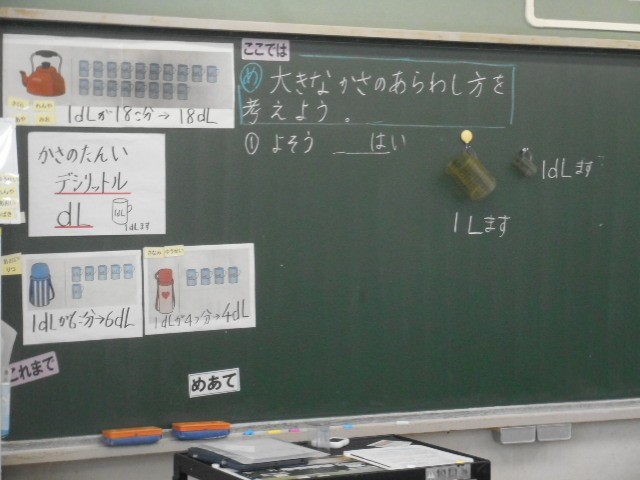 1dLが18こ分→18dL
かさのたんい
デシリットル
dL
1dL
1dLます
1dLが6こ分→6dL
1dLが4つ分→4dL
これまで
めあて
ここでは
め 大きなかさのあらわし方を
考えよう。
① よそう ___はい
1dLます
1Lます